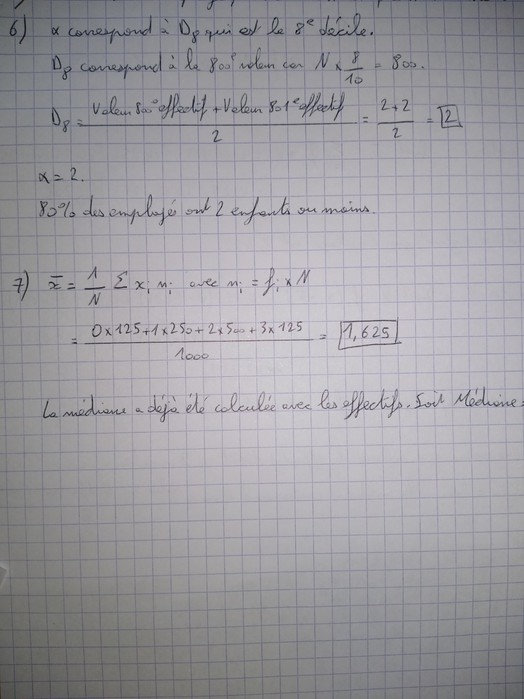 6) α correspond à D8 qui est le 8e décile.
D8 correspond à la 800e valeur car N × 8/10 = 800.
D8 = (Valeur 800e effectif + Valeur 801e effectif)/2 = (2+2)/2 = 2
α = 2.
80% des employés ont 2 enfants ou moins.
7) x̄ = 1/N Σ xi ni avec ni = fi × N
= (0×125+1×250+2×500+3×125)/1000 = 1,625
La médiane a déjà été calculée avec les effectifs. Soit Médiane =